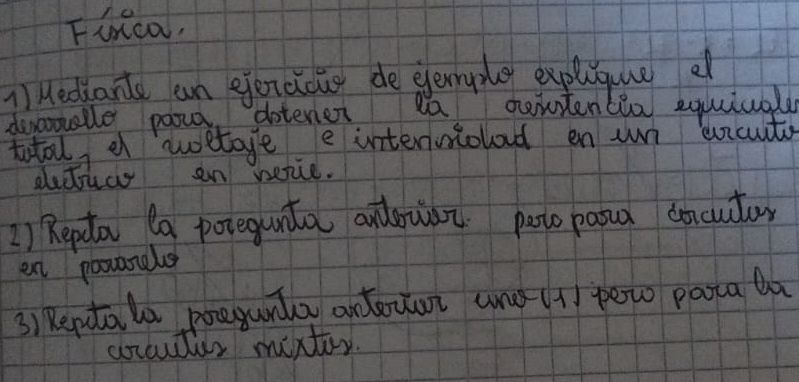 Física.
1) Mediante un ejercicio de ejemplo explique el
desarrollo para obtener la resistencia equivale
total, el voltaje e intensidad en un circuito
electrico en serie.
2) Repita la pregunta anterior. pero para circuitos
en paralelo
3) Repita la pregunta anterior uno (1) pero para la
circuitos mixtos.